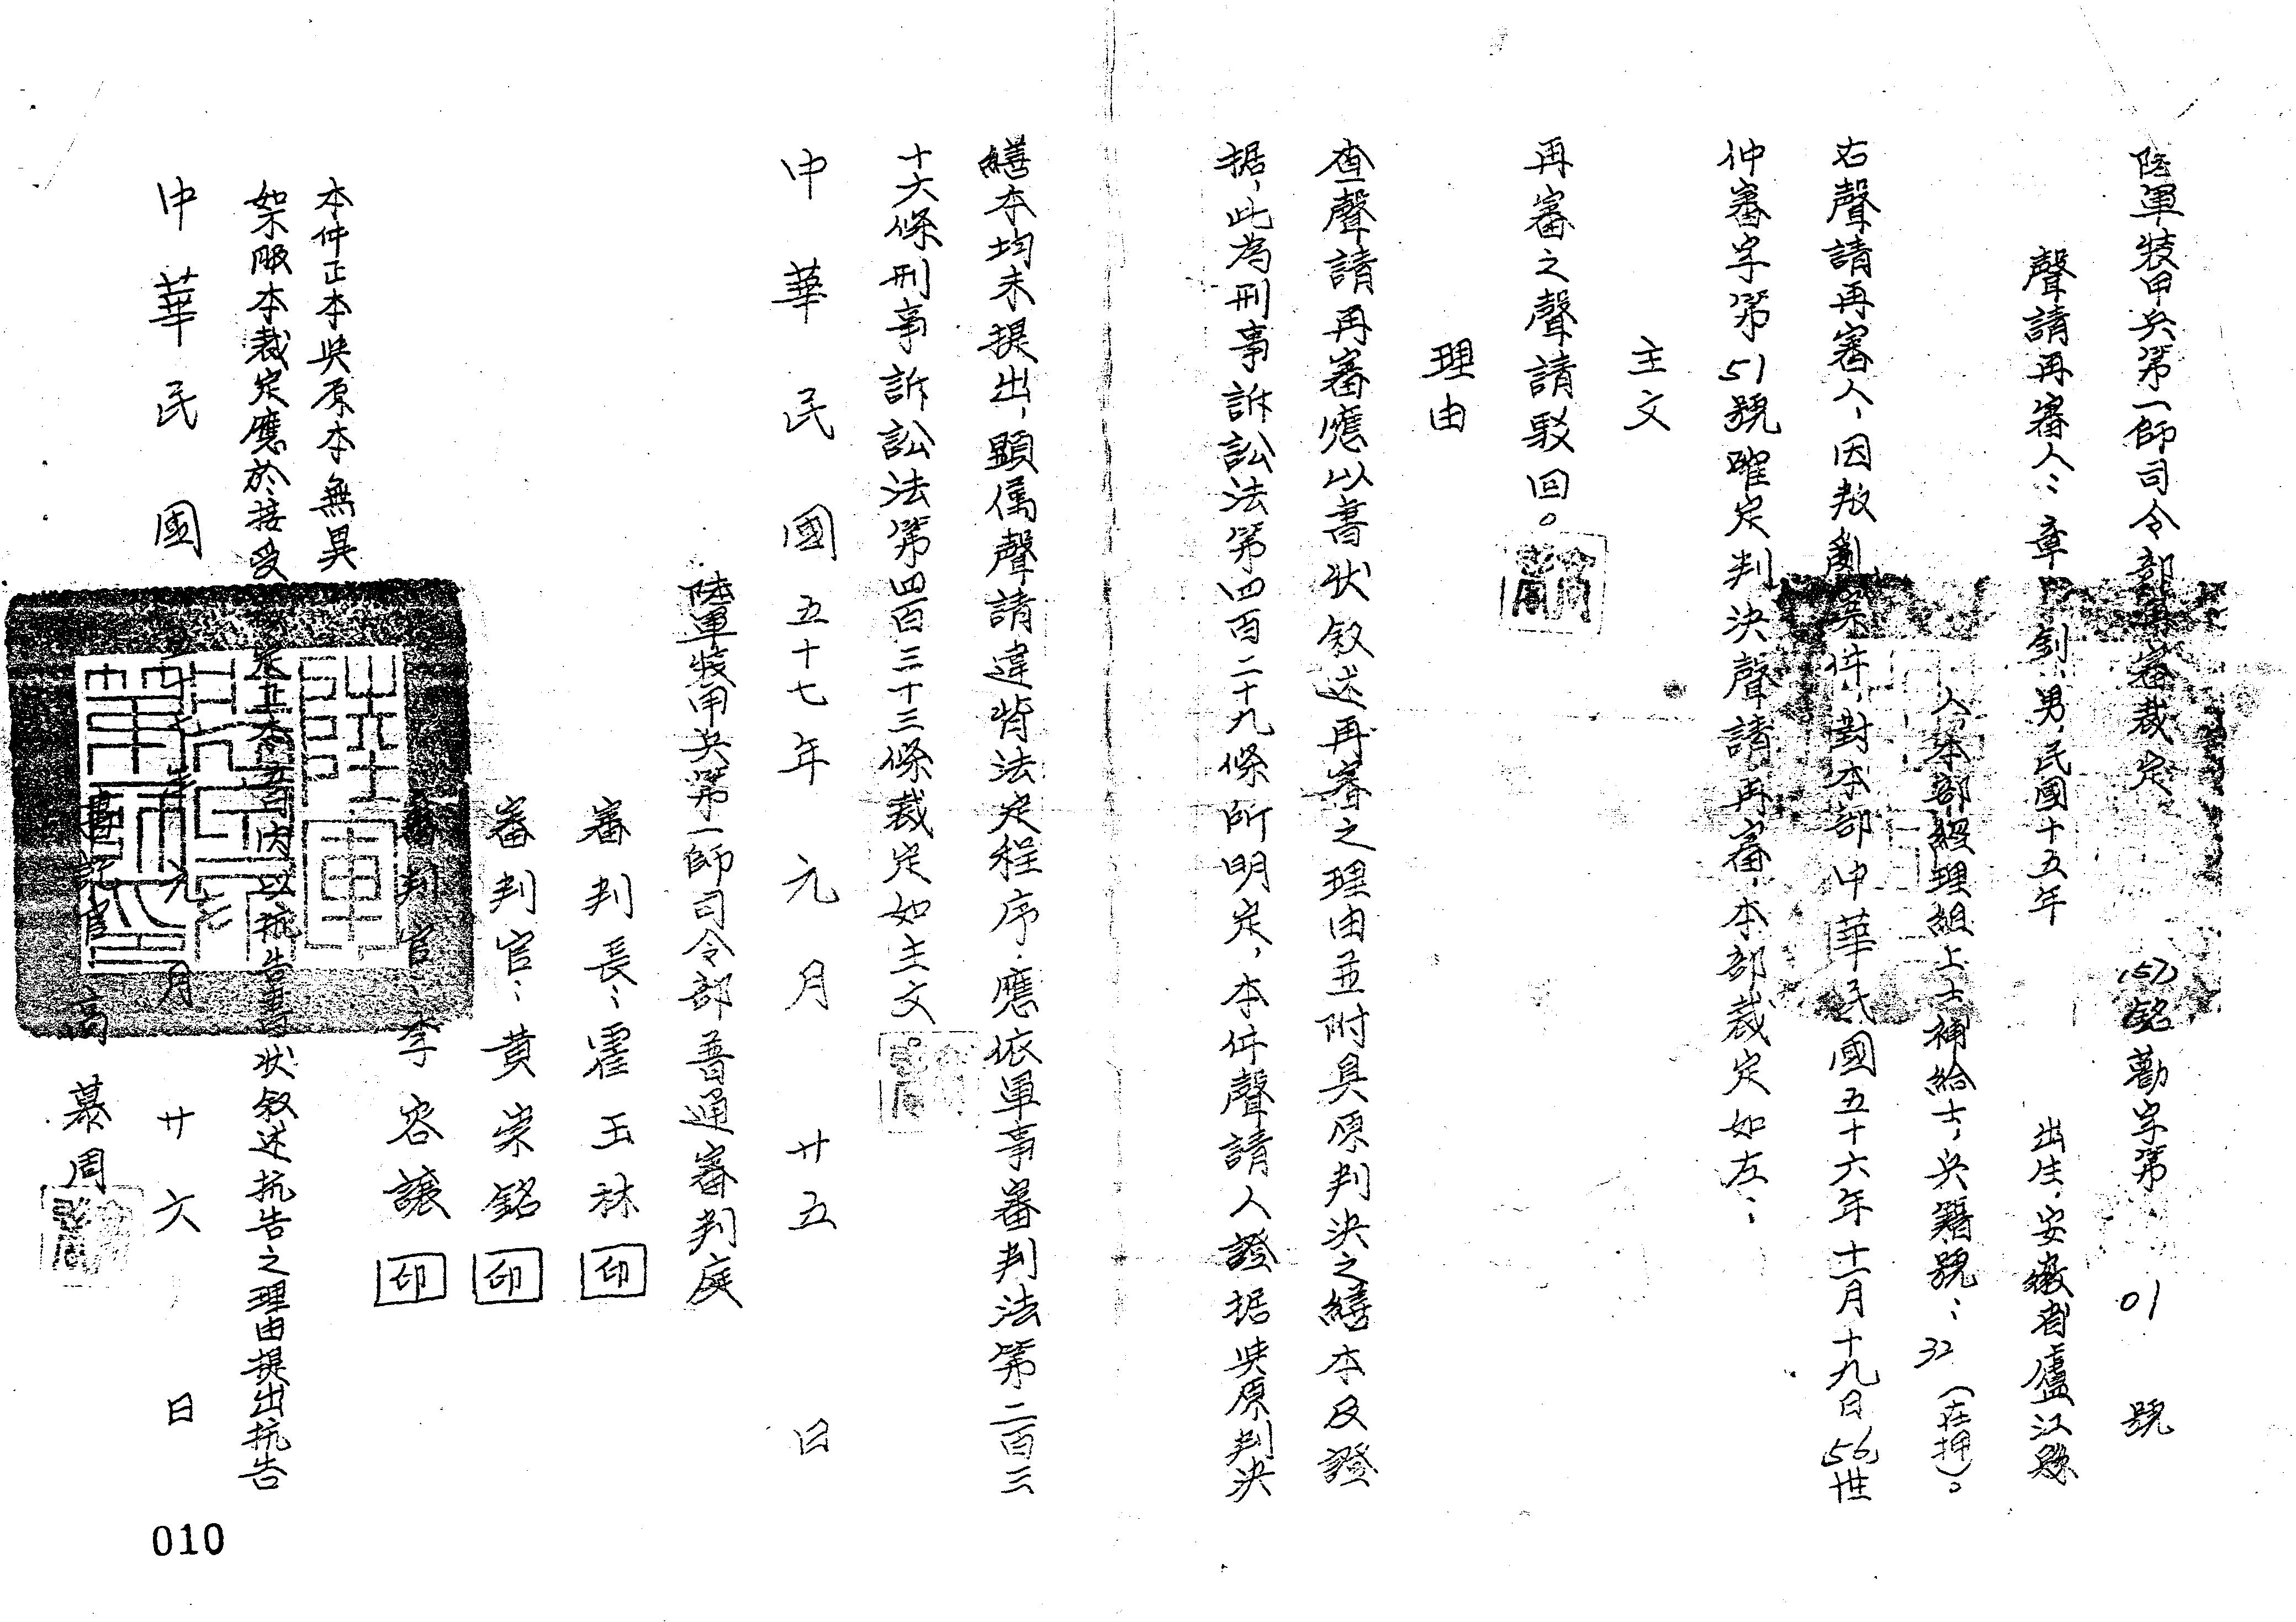 陸軍裝甲兵第一師司令部再審裁定
(57)銘勸字第01號
聲請再審人：章 釗、男、民國十五年
出生、安徽省廬江縣
人、本部經理組上士補給士，兵籍號：32（在押）。
右聲請再審人，因叛亂案件，對本部中華民國五十六年十一月十九日56世
仲審字第51號確定判決聲請再審，本部裁定如左：
主文
再審之聲請駁回。
理由
查聲請再審應以書狀敘述再審之理由並附具原判決之繕本及證
据，此為刑事訴訟法第四百二十九條所明定，本件聲請人證据與原判決
繕本均未提出，顯屬聲請違背法定程序，應依軍事審判法第二百三
十六條刑事訴訟法第四百三十三條裁定如主文
中華民國五十七年元月廿五日
陸軍裝甲兵第一師司令部普通審判庭
審判長：霍玉林 印
審判官：黃榮銘 印
審判官：李容讓 印
本件正本與原本無異
如不服本裁定應於接受裁定正本五日內以抗告書狀敘述抗告之理由提出抗告
中華民國 年元月廿六日
書記官 高慕周
010